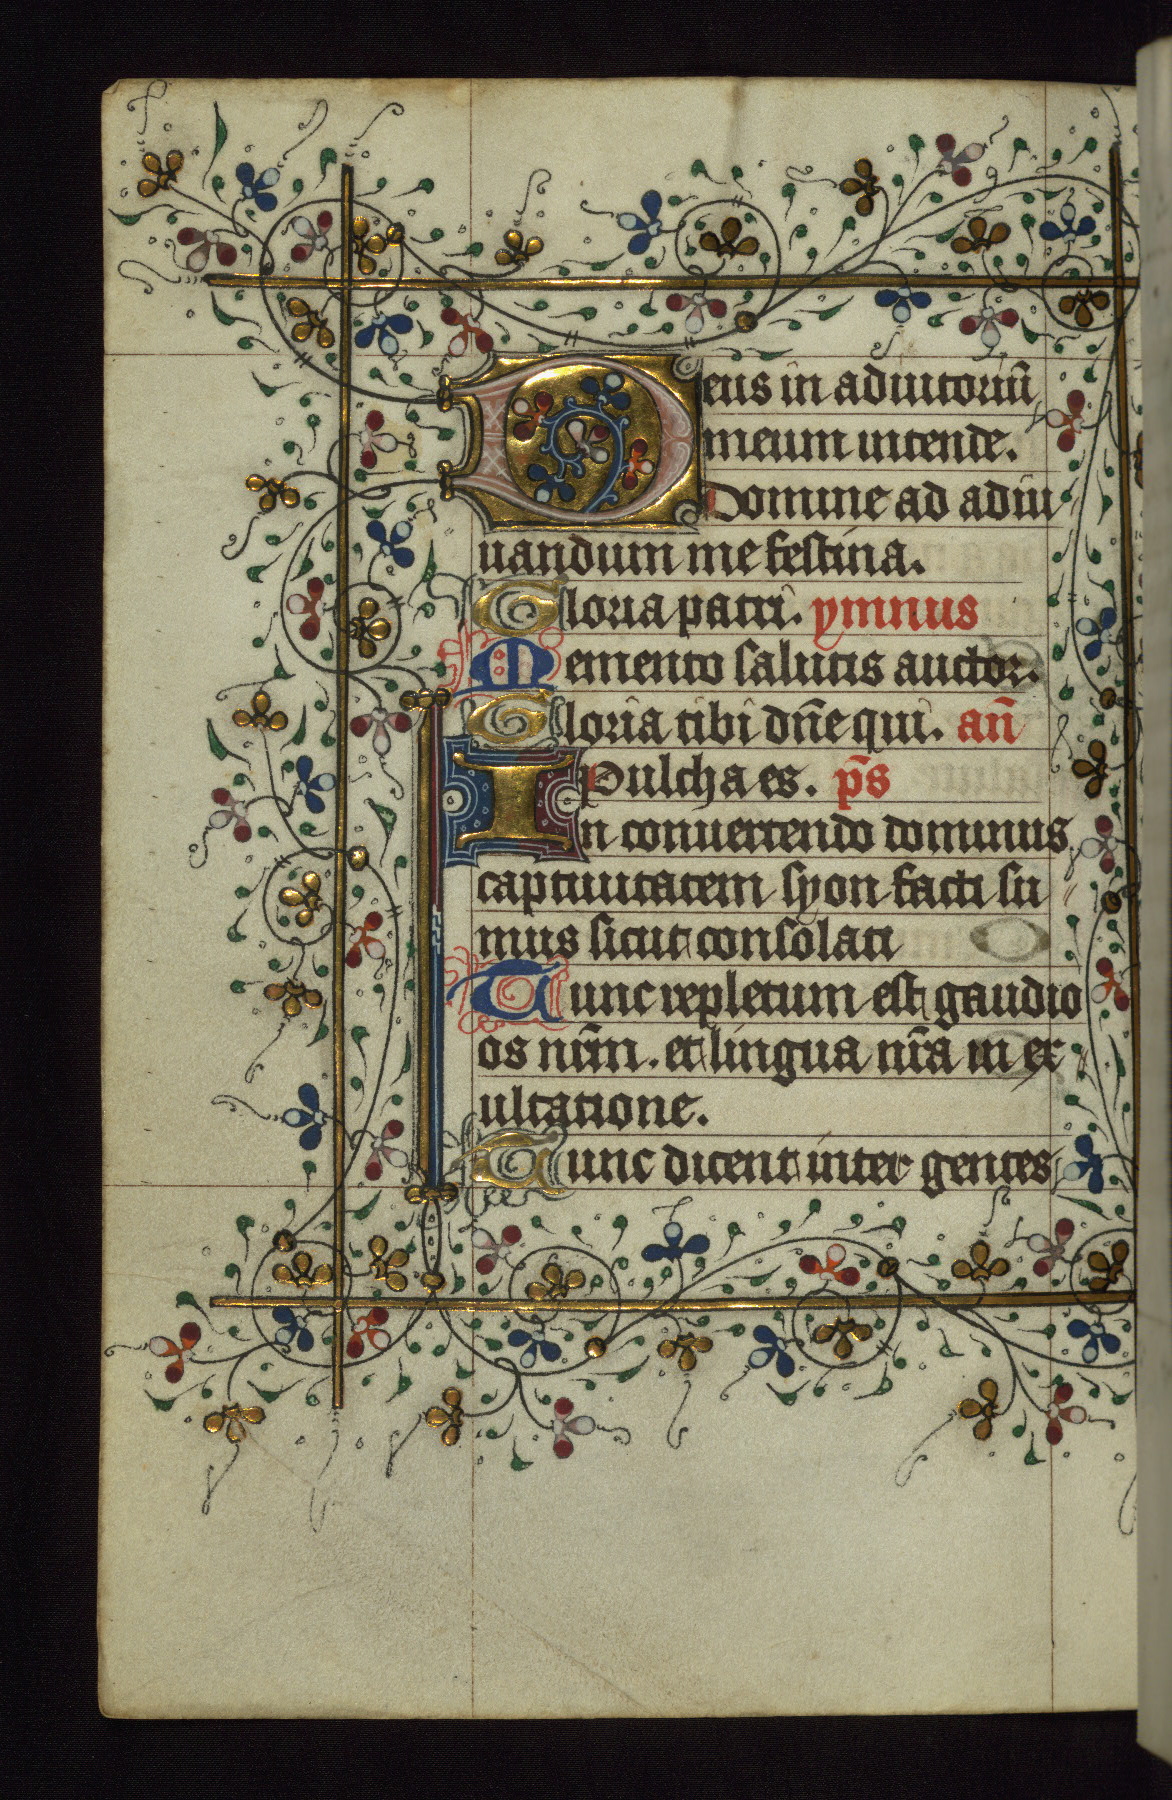 Deus in adiutoriū
meum intende.
Domine ad adiu
uandum me festina.
Gloria patri. ymnus
Memento salutis auctor.
Gloria tibi dn̄e qui. an̄
Pulcha es. p̄s
In conuertendo dominus
captiuitatem syon facti su
mus sicut consolati
Tunc repletum est gaudio
os nr̄m. et lingua nr̄a in ex
ultatione.
Tunc dicent inter gentes